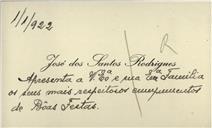 1/1/922
R
José dos Santos Rodrigues
Apresenta a V. Exª e sua Exª Familia
os seus mais respeitosos cumprimentos
de Bôas Festas.